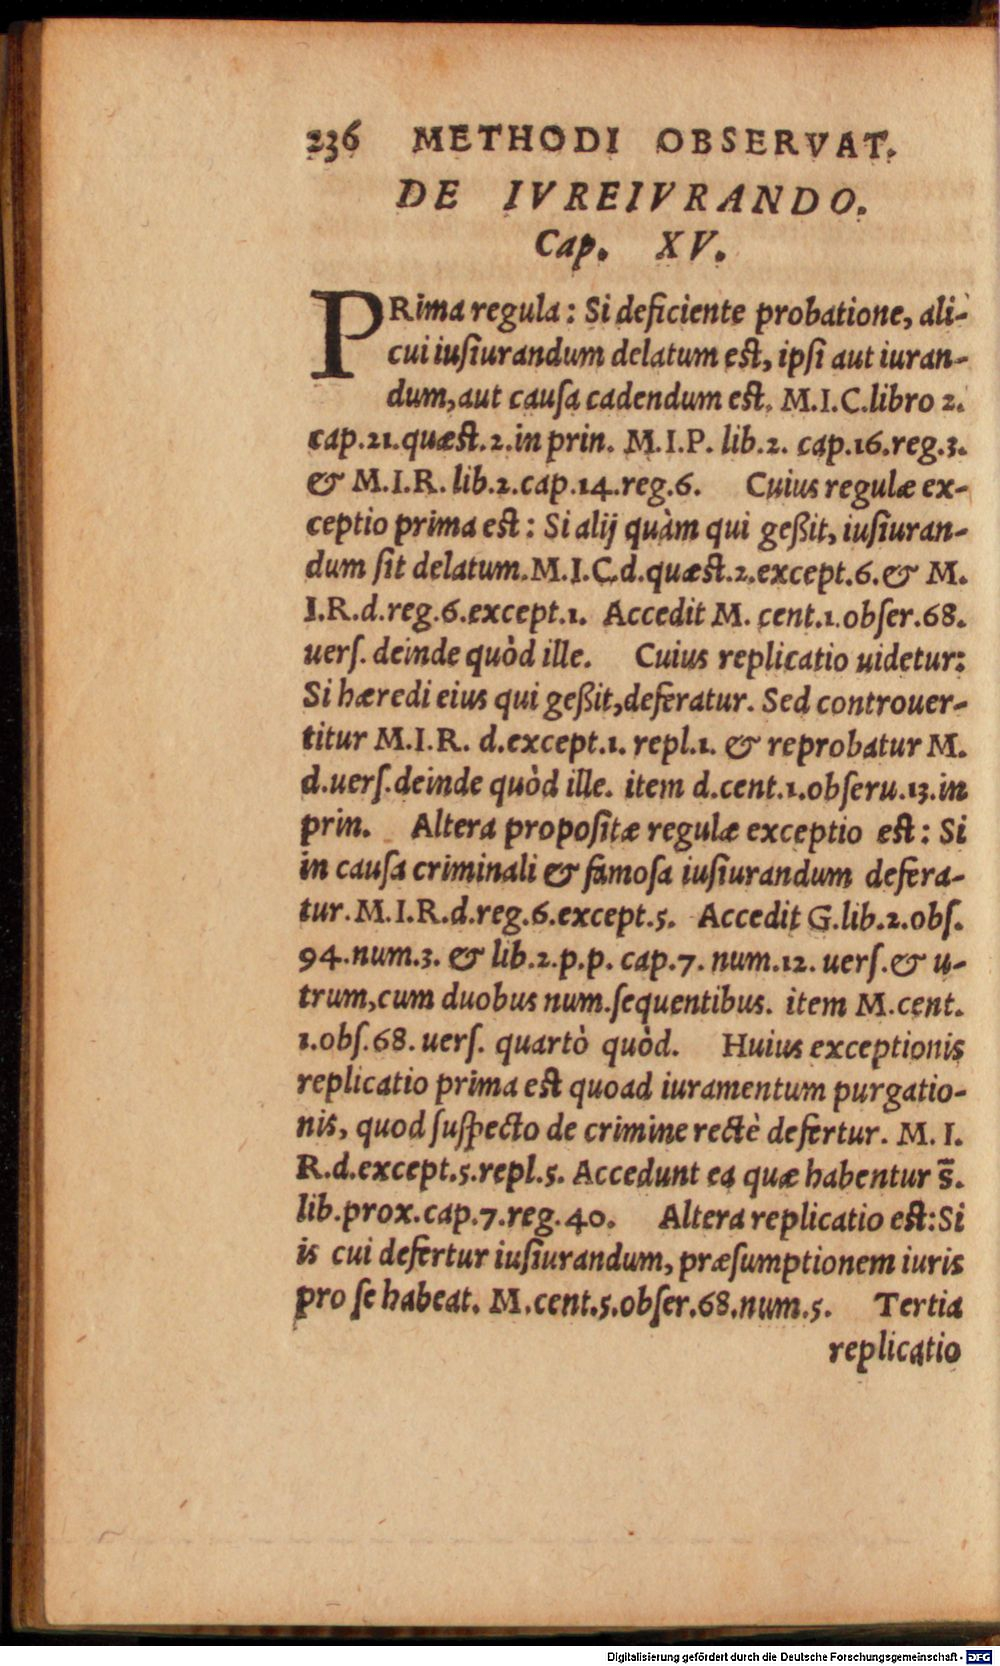 236 METHODI OBSERVAT.
DE IVREIVRANDO.
Cap. XV.
PRima regula: Si deficiente probatione, ali-
cui iusiurandum delatum est, ipsi aut iuran-
dum, aut causa cadendum est. M.I.C. libro 2.
cap.21.quæst.2.in prin. M.I.P. lib.2. cap.16.reg.3.
& M.I.R. lib.2.cap.14.reg.6. Cuius regulæ ex-
ceptio prima est: Si alij quàm qui geßit, iusiuran-
dum sit delatum. M.I.C.d.quæst.2.except.6.& M.
I.R.d.reg.6.except.1. Accedit M. cent.1.obser.68.
uers. deinde quòd ille. Cuius replicatio uidetur:
Si hæredi eius qui geßit, deferatur. Sed controuer-
titur M.I.R. d.except.1. repl.1. & reprobatur M.
d.uers.deinde quòd ille. item d.cent.1.obseru.13.in
prin. Altera propositæ regulæ exceptio est: Si
in causa criminali & famosa iusiurandum defera-
tur. M.I.R.d.reg.6.except.5. Accedit G.lib.2.obs.
94.num.3. & lib.2.p.p. cap.7. num.12. uers.& u-
trum, cum duobus num.sequentibus. item M.cent.
1.obs.68. uers. quartò quòd. Huius exceptionis
replicatio prima est quoad iuramentum purgatio-
nis, quod suspecto de crimine rectè defertur. M. I.
R.d.except.5.repl.5. Accedunt ea quæ habentur s̄.
lib.prox.cap.7.reg.40. Altera replicatio est: Si
is cui defertur iusiurandum, præsumptionem iuris
pro se habeat. M.cent.5.obser.68.num.5. Tertia
replicatio
Digitalisierung gefördert durch die Deutsche Forschungsgemeinschaft - DFG